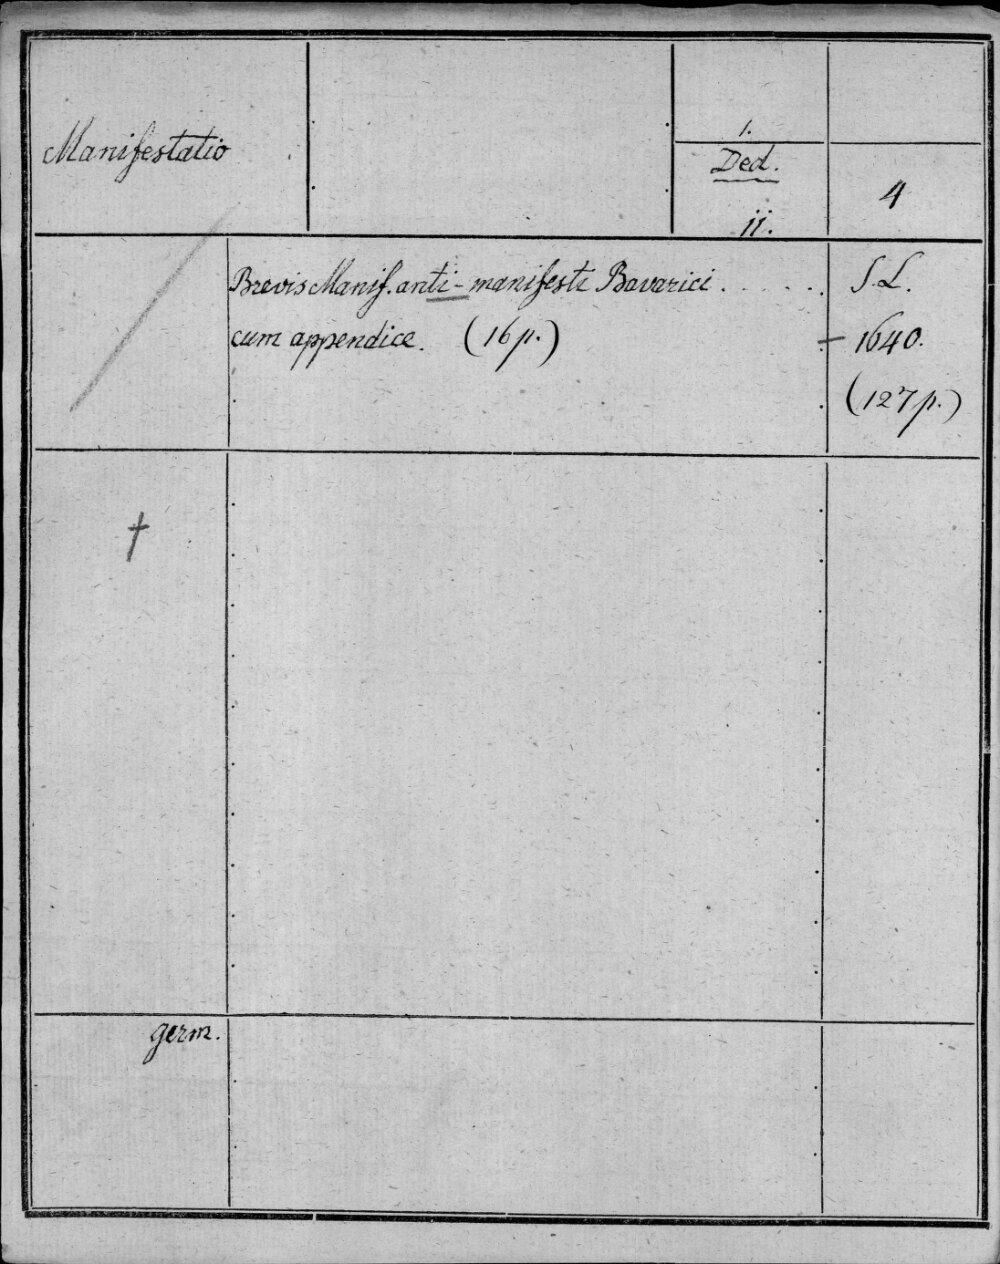 Manifestatio
1.
Ded.
ii.
4
Brevis Manif. anti-manifesti Bavarici . . . . . .
cum appendice. (16 p.)
S. L.
- 1640.
(127 p.)
†
germ.